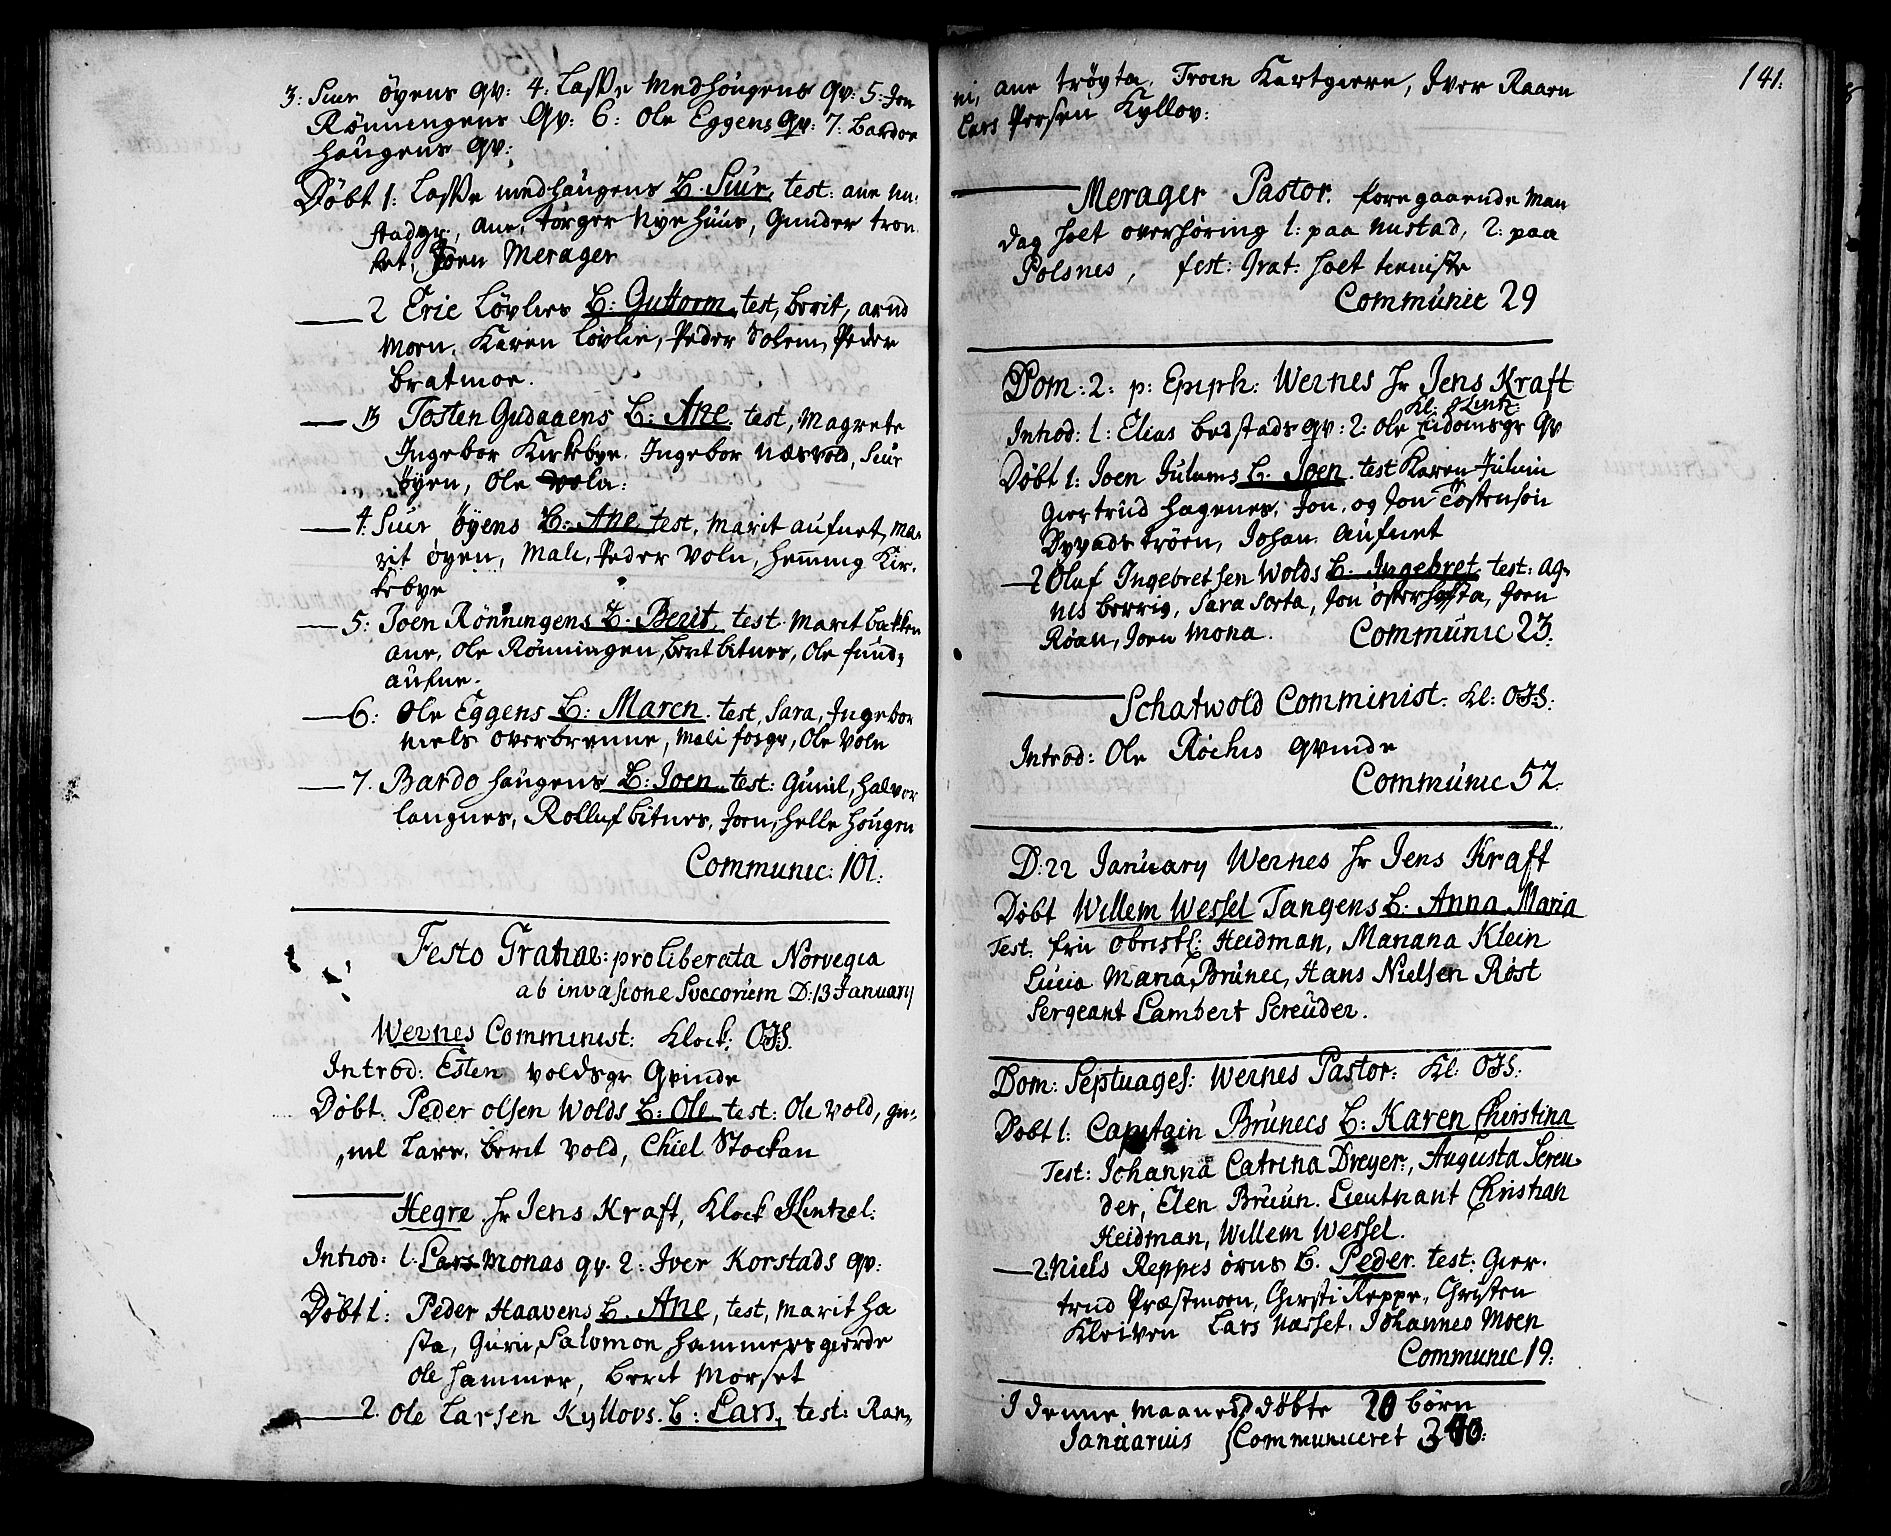 3: Siur öyens qv: 4: Lasse Medhöugens Qv: 5: Jon
Rönningens Qv: 6: Ole Eggens Qv: 7: Bardoe
Haugens qv:
Döbt 1: Lasse medhaugens B. Siur, test: ane nu-
stadgr, ane, törger Nyehuus, Gunder tron
ket, Joen Merager
2 Eric Lövlies B: Guttorm test, berit, arnd
moen, Karen lövlie, Peder Solem, Peder
bratmoe.
3 Tosten Gudaaens B: Ane. test, Magrete
Ingebor Kirkebye, Ingebor næsvold, Siur
öyen, Ole voln:
4. Siur öyens B: Ane test, Marit aufnet, ma-
rit öyen, Mali, Peder Voln, Hemming Kir-
kebye
5: Joen Rönningens B. Berit, test. Marit bakken
ane, Ole Rönningen, berit bitnes, Ole sund,
aufne.
6: Ole Eggens B: Maren. test, Sara, Ingebor
niels overbrenne, Mali fosgr, Ole Voln
7. Bardo haugens B: Joen, test: Gunil, halvor
langnes, Rolluf bitnes, Joen, helle hougen
Communic: 101:
Festo Gratiae: pro liberata Norvegia
ab invasione Svecorum D: 13 January
Wernes Comminist: Klock: OJS.
Introd: Esten voldsgr Qvinde
Döbt. Peder olsen Wolds B: Ole test: Ole vold, gu-
nil Lars, berit vold, Chiel Stockan
Hegre Hr Jens Kraft, Klock JLintzel:
Introd: 1. Lars Monas qv. 2: Iver Korstads qv:
Döbt 1: Peder Haavens B. Ane, test, Marit ha
sta, Guru, Salomon hammersgierde
Ole hammer, berit Morset
2. Ole Larsen Kyllovs. B: Lars, test: Ran-
141.
ni, ane tröyta, Troen Kartgiere, Iver Raaen
Lars Persen Kyllov:
Merager Pastor. foregaaende Man
dag holt overhöring 1: paa nustad, 2: paa
Polsnes, fest: Grat: holt teniste
Communic 29
Dom: 2: p: Epiph: Wernes Hr Jens Kraft
Kl: JLintz:
Introd: 1: Elias bedstads qv: 2: Ole Eidomsgr Qv
Döbt 1: Joen Julums B. Joen. test Karen Julum
Giertrud hagenes, Jon, og Jon Töstensön
Dyvadströen, Johan aufnet
2 Oluf Ingebretsen Wolds B. Ingebret test: Ag-
nes berrig, Sara Sorta, Jon österhasta, Joen
Röan, Joen Mona. Communic 23:
Schatwold Comminist. Kl: OJS:
Introd: Ole Röchis qvinde
Communic 52.
D: 22 January Wernes Hr Jens Kraft
Döbt Willem Wessel Tangens B. Anna Maria
Test. fru obristl: Heidman, Mariana Klein
Lucia Maria Brunec, Hans Nielsen Röst
Sergeant Lambert Screuder.
Dom: Septuages: Wernes Pastor: Kl: OJS:
Döbt 1: Capitain Brunecs B: Karen Christina
Test: Johanna Catrina Dreyer, Augusta Screu-
der, Elen Bruun. Lieutnant Christian
Heidman, Willem Wessel.
2: Niels Reppes örns B. Peder. test: Gier-
trud Præstmoen, Chersti Reppe, Christen
Kleiven Lars næsset. Johannes Moen
Communic 19:
I denne Maaned döbte 20 börn
Januarius Communiceret